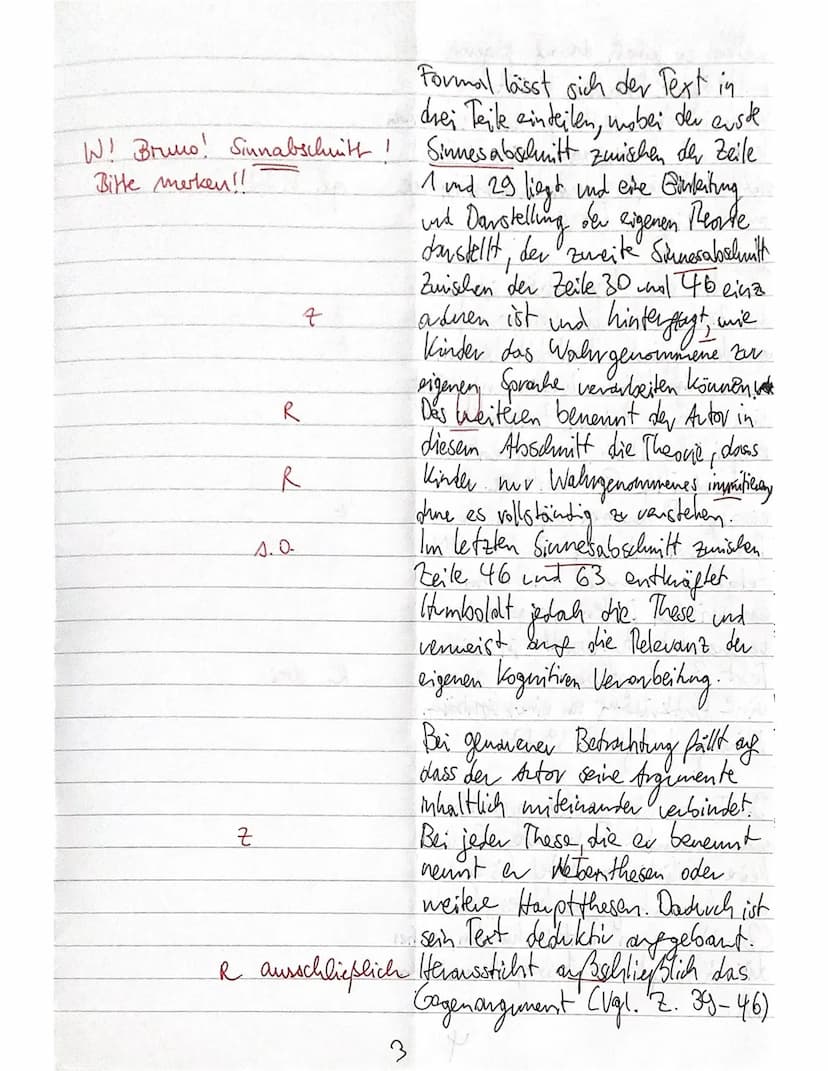 Formal lässt sich der Text in
drei Teile einteilen, wobei der erste
W! Bruno! Sinnabschnitt! Sinnesabschnitt zwischen der Zeile
Bitte merken!! 1 und 29 liegt und eine Einleitung
und Darstellung der eigenen Theorie
darstellt, der zweite Sinnesabschnitt
zwischen der Zeile 30 und 46 einz
Z adnen ist und hinterfragt, wie
Kinder das Wahrgenommene zur
eigenen Sprache verarbeiten können.
R Des weiteren benennt der Autor in
diesem Abschnitt die Theorie, dass
R Kinder nur Wahrgenommenes immitieren,
ohne es vollständig zu verstehen.
s.o. Im letzten Sinnesabschnitt zwischen
Zeile 46 und 63 entkräftet
Humboldt jedoch die These und
verweist auf die Relevanz der
eigenen kognitiven Verarbeitung.
Bei genauerer Betrachtung fällt auf
dass der Autor seine Argumente
inhaltlich miteinander verbindet.
Z Bei jeder These, die er benennt
nennt er Nebenthesen oder
weitere Hauptthesen. Daduch ist
sein Text deduktiv aufgebaut.
R ausschließlich Heraussticht außschließlich das
Gegenargument (Vgl. Z. 39-46)
3